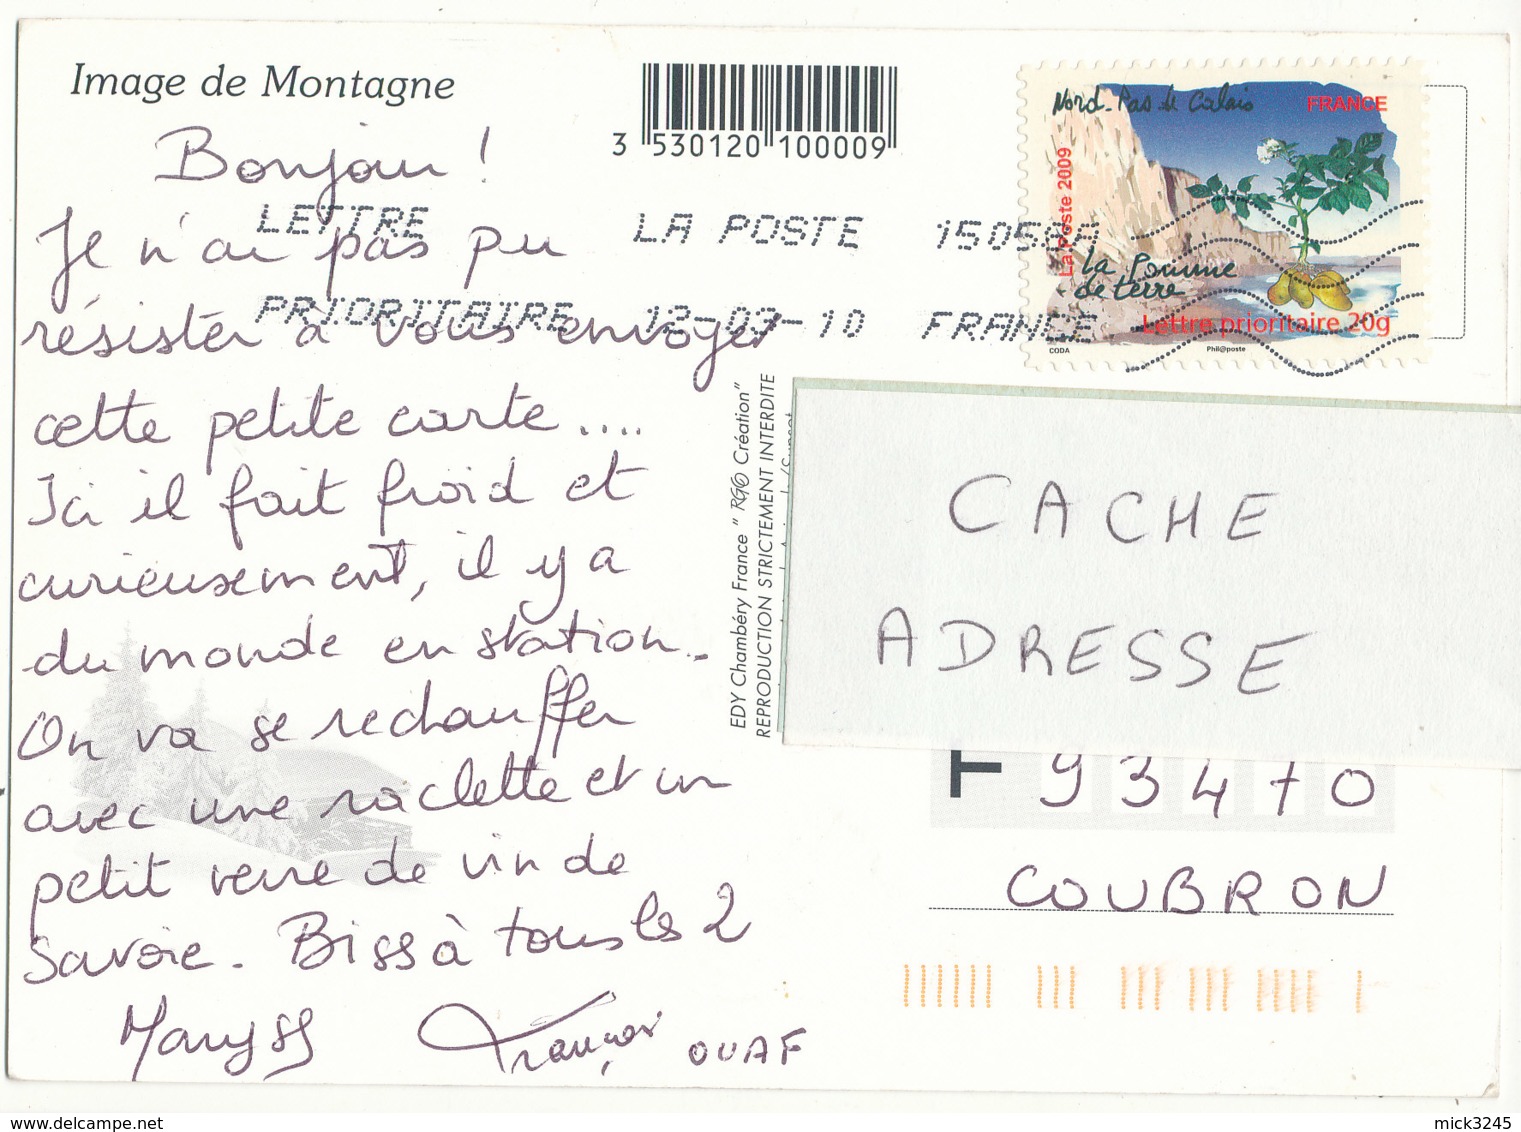 Image de Montagne
3 530120 100009
Bonjour !
Je n'ai pas pu
résister à vous envoyer
cette petite carte ....
Ici il fait froid et
curieusement, il y a
du monde en station.
On va se rechauffer
avec une raclette et un
petit verre de vin de
Savoie. Biss à tous les 2
Maryss François OUAF
LETTRE LA POSTE 15058A
PRIORITAIRE 12-03-10 FRANCE
Nord-Pas de Calais
FRANCE
La Poste 2009
La Pomme
de terre
Lettre prioritaire 20g
CODA Phil@poste
EDY Chambéry France " RGO Création"
REPRODUCTION STRICTEMENT INTERDITE
CACHE
ADRESSE
93470
COUBRON
mick3245